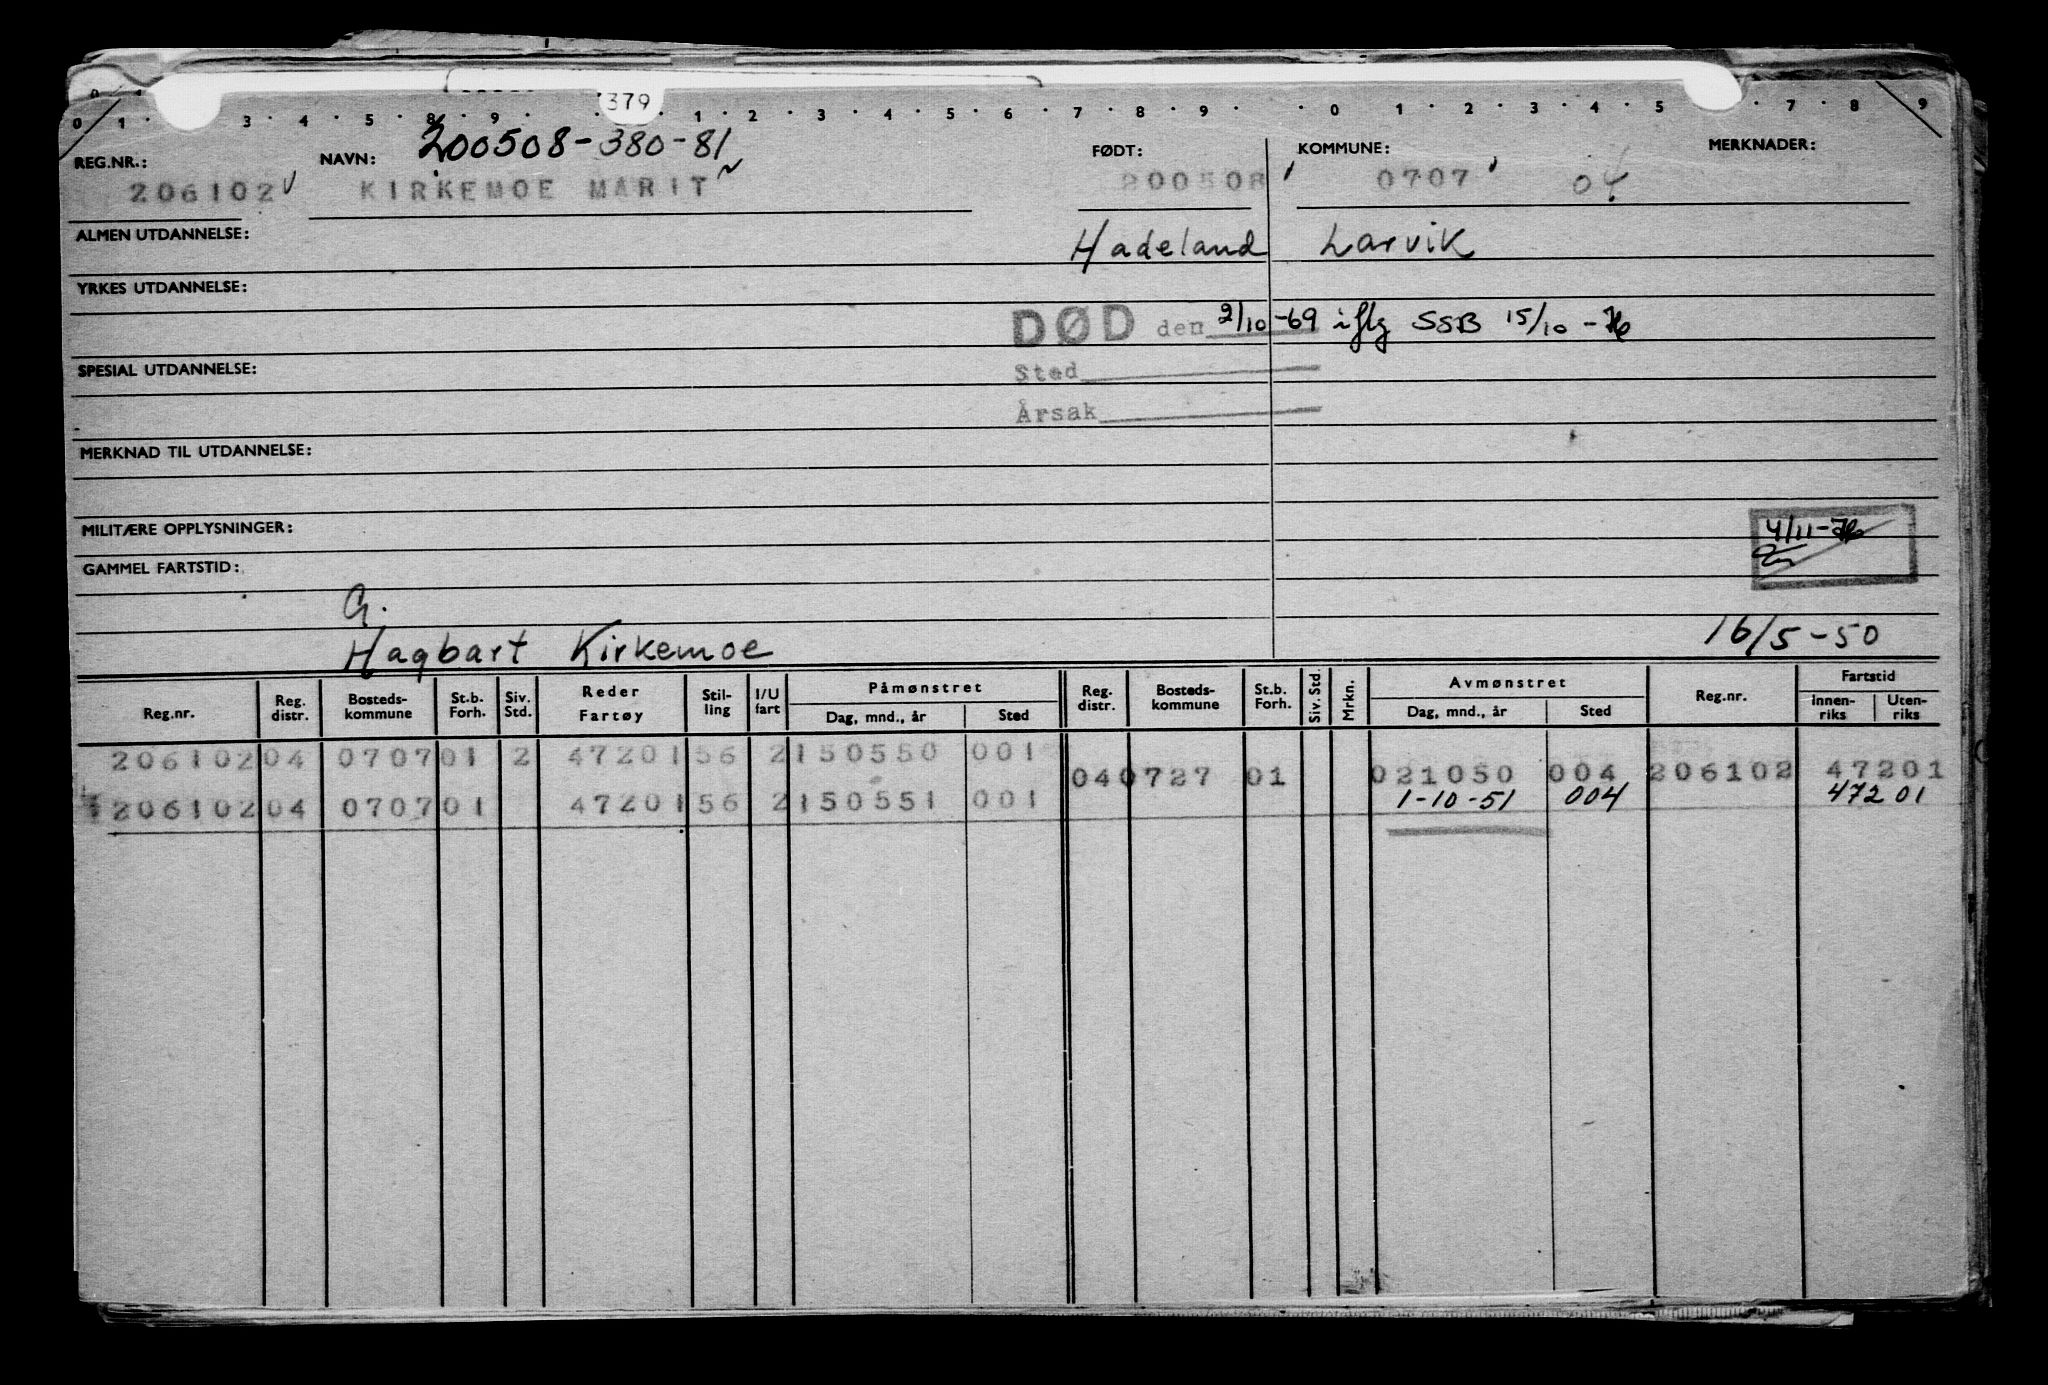 379
200508-380-81
REG.NR.: NAVN: FØDT: KOMMUNE: MERKNADER:
206102 KIRKEMOE MARIT 200508 0707 04
ALMEN UTDANNELSE: Hadeland Larvik
YRKES UTDANNELSE:
DØD den 2/10-69 iflg SSB 15/10-76
SPESIAL UTDANNELSE: Sted
Årsak
MERKNAD TIL UTDANNELSE:
MILITÆRE OPPLYSNINGER: 4/11-76
GAMMEL FARTSTID:
G.
Hagbart Kirkemoe 16/5-50
Reg.nr. Reg. distr. Bosteds-kommune St.b. Forh. Siv. Std. Reder Fartøy Stil-ling I/U fart Påmønstret Dag, mnd., år Sted Reg. distr. Bosteds-kommune St.b. Forh. Siv. Std. Mrkn. Avmønstret Dag, mnd., år Sted Reg.nr. Fartstid Innen-riks Uten-riks
206102 04 0707 01 2 47201 56 2 150550 001
04 0727 01 021050 004 206102 47201
206102 04 0707 01 47201 56 2 150551 001 1-10-51 004 47201